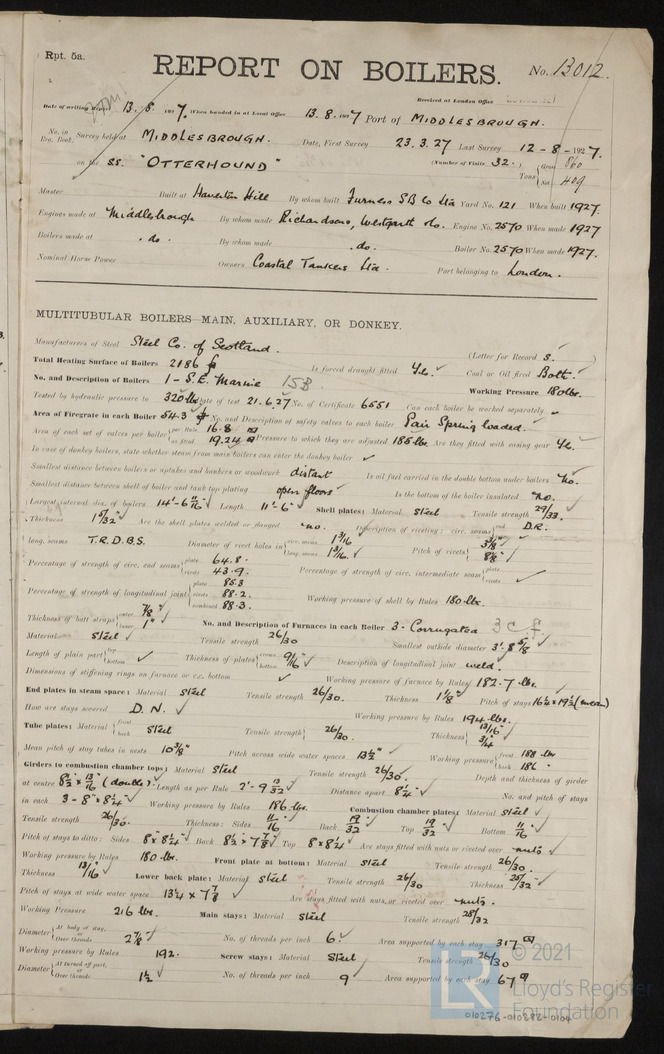 Rpt. 5a.
REPORT ON BOILERS.
No. 13012.
Received at London Office
Date of writing Report 13. 8. 1927. When handed in at Local Office 13.8.1927 Port of MIDDLESBROUGH.
No. in Reg. Book. Survey held at MIDDLESBROUGH. Date, First Survey 23.3.27 Last Survey 12-8-1927.
on the SS. "OTTERHOUND" (Number of Visits 32.) Tons Gross 860 Net 409
Master Built at Haverton Hill By whom built Furness S B Co Ltd Yard No. 121 When built 1927.
Engines made at Middlesbrough By whom made Richardsons, Westgarth & Co. Engine No. 2570 When made 1927
Boilers made at . do . By whom made . do . Boiler No. 2570 When made 1927.
Nominal Horse Power Owners Coastal Tankers Ltd. Port belonging to London.
MULTITUBULAR BOILERS—MAIN, AUXILIARY, OR DONKEY.
Manufacturers of Steel Steel Co. of Scotland. (Letter for Record S. )
Total Heating Surface of Boilers 2186 Is forced draught fitted Yes. Coal or Oil fired Both.
No. and Description of Boilers 1 - S.E. Marine 1SB Working Pressure 180 lbs.
Tested by hydraulic pressure to 320 lbs Date of test 21.6.27 No. of Certificate 6551 Can each boiler be worked separately
Area of Firegrate in each Boiler 54.3 No. and Description of safety valves to each boiler Pair Spring loaded.
Area of each set of valves per boiler per Rule 16.8 as fitted 19.24 Pressure to which they are adjusted 185 lbs. Are they fitted with easing gear Yes.
In case of donkey boilers, state whether steam from main boilers can enter the donkey boiler ✓
Smallest distance between boilers or uptakes and bunkers or woodwork distant Is oil fuel carried in the double bottom under boilers No.
Smallest distance between shell of boiler and tank top plating open floors Is the bottom of the boiler insulated No.
Largest internal dia. of boilers 14'-6 11/16" Length 11'-6" Shell plates: Material Steel Tensile strength 29/33.
Thickness 1 5/32" Are the shell plates welded or flanged no. Description of riveting: circ. seams end D.R.
long. seams T.R.D.B.S. Diameter of rivet holes in circ. seams 1 3/16 long. seams 1 3/16 Pitch of rivets 3 7/8" 8 7/8"
Percentage of strength of circ. end seams plate 64.8. rivets 43.9. Percentage of strength of circ. intermediate seam plate rivets
Percentage of strength of longitudinal joint plate 85.3 rivets 88.2. combined 88.3. Working pressure of shell by Rules 180 lbs.
Thickness of butt straps outer 7/8" inner 1" No. and Description of Furnaces in each Boiler 3 - Corrugated 3 c f.
Material Steel ✓ Tensile strength 26/30 Smallest outside diameter 3'-8 5/8"
Length of plain part top bottom Thickness of plates crown bottom 9/16" Description of longitudinal joint weld.
Dimensions of stiffening rings on furnace or c.c. bottom ✓ Working pressure of furnace by Rules 182.7 lbs.
End plates in steam space: Material Steel Tensile strength 26/30. Thickness 1 1/8" Pitch of stays 16½ x 19½ (mean)
How are stays secured D.N. ✓ Working pressure by Rules 194 lbs.
Tube plates: Material front back Steel Tensile strength 26/30. Thickness 13/16" 3/4"
Mean pitch of stay tubes in nests 10 3/8" Pitch across wide water spaces 13½" Working pressure front 188 lbs back 186 "
Girders to combustion chamber tops: Material Steel Tensile strength 26/30. Depth and thickness of girder
at centre 8½ x 13/16 (double). Length as per Rule 2'-9 13/32 Distance apart 8¼" No. and pitch of stays
in each 3 - 8" x 8¼" Working pressure by Rules 186 lbs. Combustion chamber plates: Material Steel
Tensile strength 26/30. Thickness: Sides 11/16 Back 19/32 Top 19/32 Bottom 11/16
Pitch of stays to ditto: Sides 8" x 8¼" Back 8½ x 7 7/8 Top 8 x 8¼ Are stays fitted with nuts or riveted over nuts
Working pressure by Rules 180 lbs. Front plate at bottom: Material Steel Tensile strength 26/30.
Thickness 13/16" Lower back plate: Material Steel Tensile strength 26/30 Thickness 25/32
Pitch of stays at wide water space 13¼ x 7 7/8 Are stays fitted with nuts, or riveted over nuts.
Working Pressure 216 lbs. Main stays: Material Steel Tensile strength 28/32
Diameter At body of stay, or Over threads 2 7/8" No. of threads per inch 6. Area supported by each stay 317
Working pressure by Rules 192. Screw stays: Material Steel Tensile strength 26/30
Diameter At turned off part, or Over threads 1½ No. of threads per inch 9 Area supported by each stay 67
LR
© 2021
Lloyd's Register
Foundation
010276-010282-0104